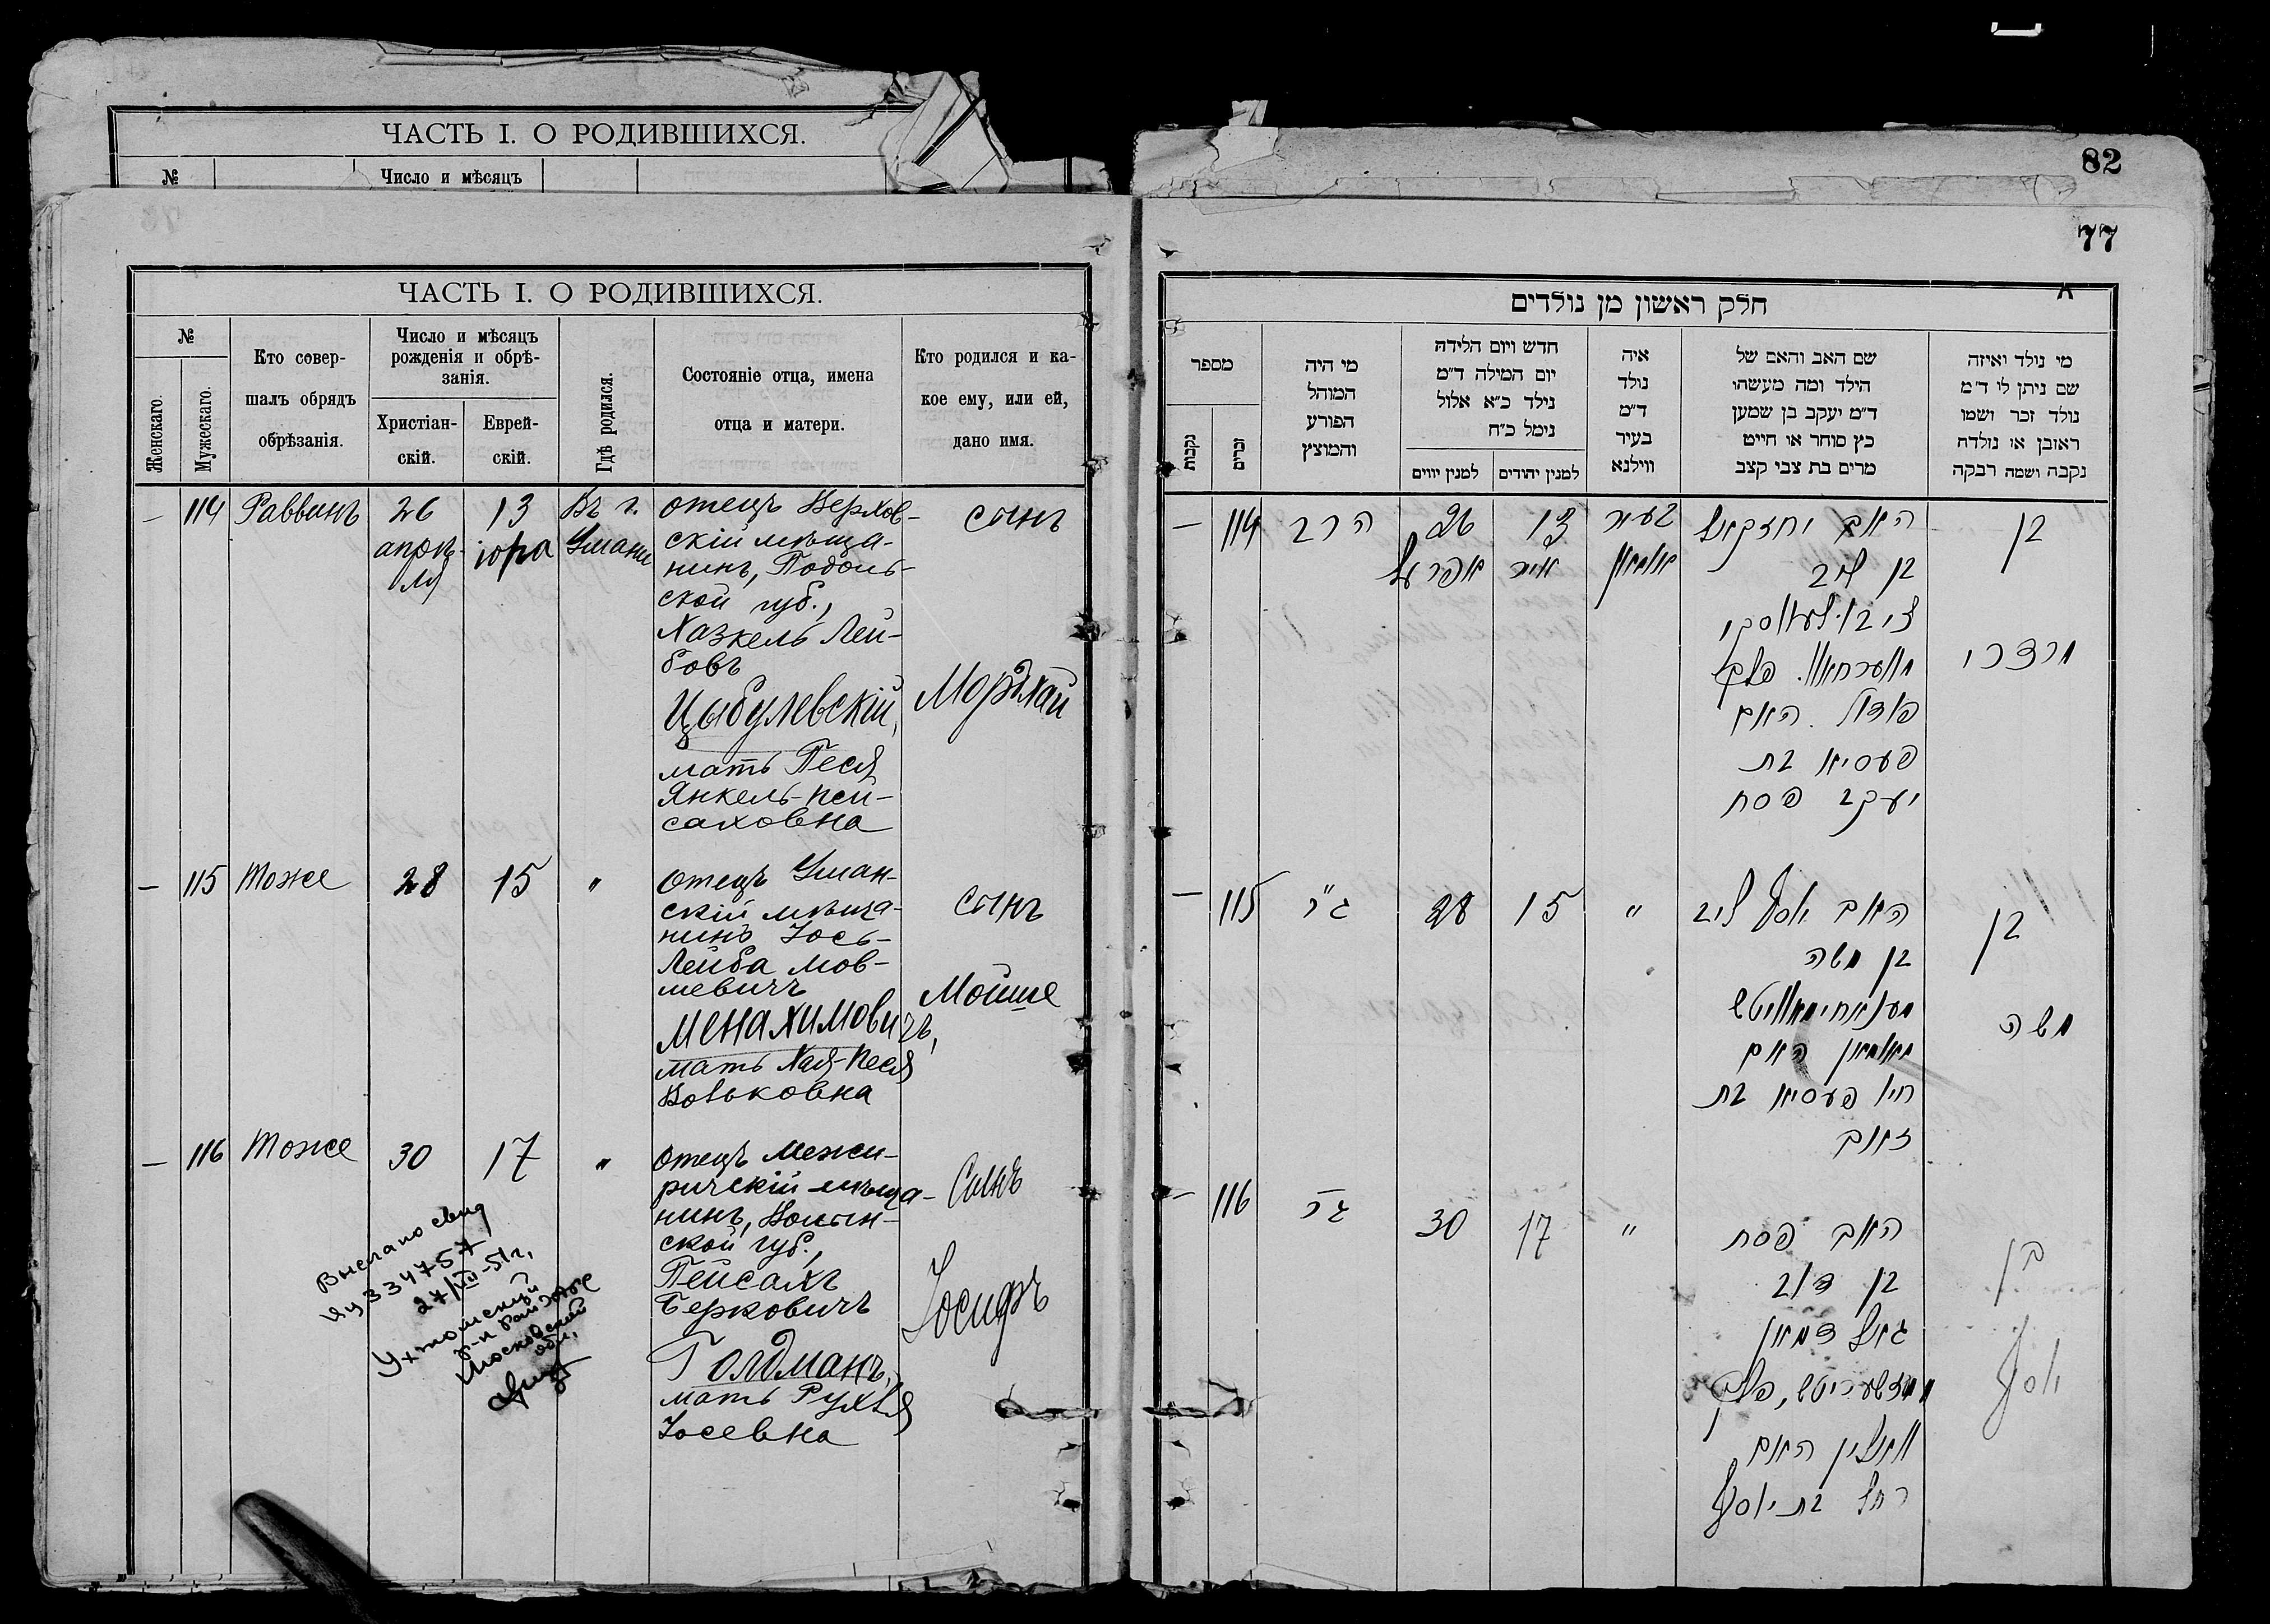 ЧАСТЬ I. О РОДИВШИХСЯ.
№
Число и мѣсяцъ
82
77
ЧАСТЬ I. О РОДИВШИХСЯ.
№
Женскаго.
Мужескаго.
Кто совер-
шалъ обрядъ
обрѣзанія.
Число и мѣсяцъ
рожденія и обрѣ-
занія.
Христіан-
скій.
Еврей-
скій.
Гдѣ родился.
Состояніе отца, имена
отца и матери.
Кто родился и ка-
кое ему, или ей,
дано имя.
— 114 Раввинъ
26
апрѣ-
ля
13
іора
Въ г.
Умани
отецъ Верхов-
скій мѣща-
нинъ, Подоль-
ской губ.,
Хазкель Лей-
бовъ
Цыбулевскій,
мать Песя
Янкель-Пей-
саховна
сынъ
Мордхай
— 115 Тоже 28 15 "
отецъ Уман-
скій мѣща-
нинъ Іось-
Лейба Мов-
шевичъ
Менахимовичъ,
мать Хая-Песя
Вольковна
сынъ
Мойше
— 116 Тоже 30 17 "
отецъ Межи-
ричскій мѣща-
нинъ, Волын-
ской губ.,
Пейсахъ
Берковичъ
Голдманъ,
мать Рухля
Іосевна
Сынъ
Іосифъ
Выслано свид
334757
27/VII-51г.
Ухтомский
р-н
Московской
обл.
חלק ראשון מן נולדים
מספר
נקבות
זכרים
מי היה
המוהל
הפורע
והמוצץ
חדש ויום הלידה
יום המילה ד״מ
נילד כ״א אלול
נימל כ״ח
למנין יווים
למנין יהודים
איה
נולד
ד״מ
בעיר
ווילנא
שם האב והאם של
הילד ומה מעשהו
ד״מ יעקב בן שמען
כץ סוחר או חייט
מרים בת צבי קצב
מי נולד ואיזה
שם ניתן לו ד״מ
נולד זכר ושמו
ראובן או נולדה
נקבה ושמה רבקה
— 114 הרב
26
אפרעל
13
אייר
בעיר
אומאן
האב יחזקאל
בן ליב
ציבולעווסקי
פלך
פודול האם
פעסיא בת
יעקב פסח
בן
מרדכי
— 115 28 15 "
האב יוסף ליב
בן משה
מענאחימאוויטש
מאומאן האם
חיי פעסיא בת
זאב
בן
משה
— 116 30 17 "
האב פסח
בן דוב
גאלדמאן
מעזשעריטש, פלך
וואלין האם
רחל בת יוסף
בן
יוסף